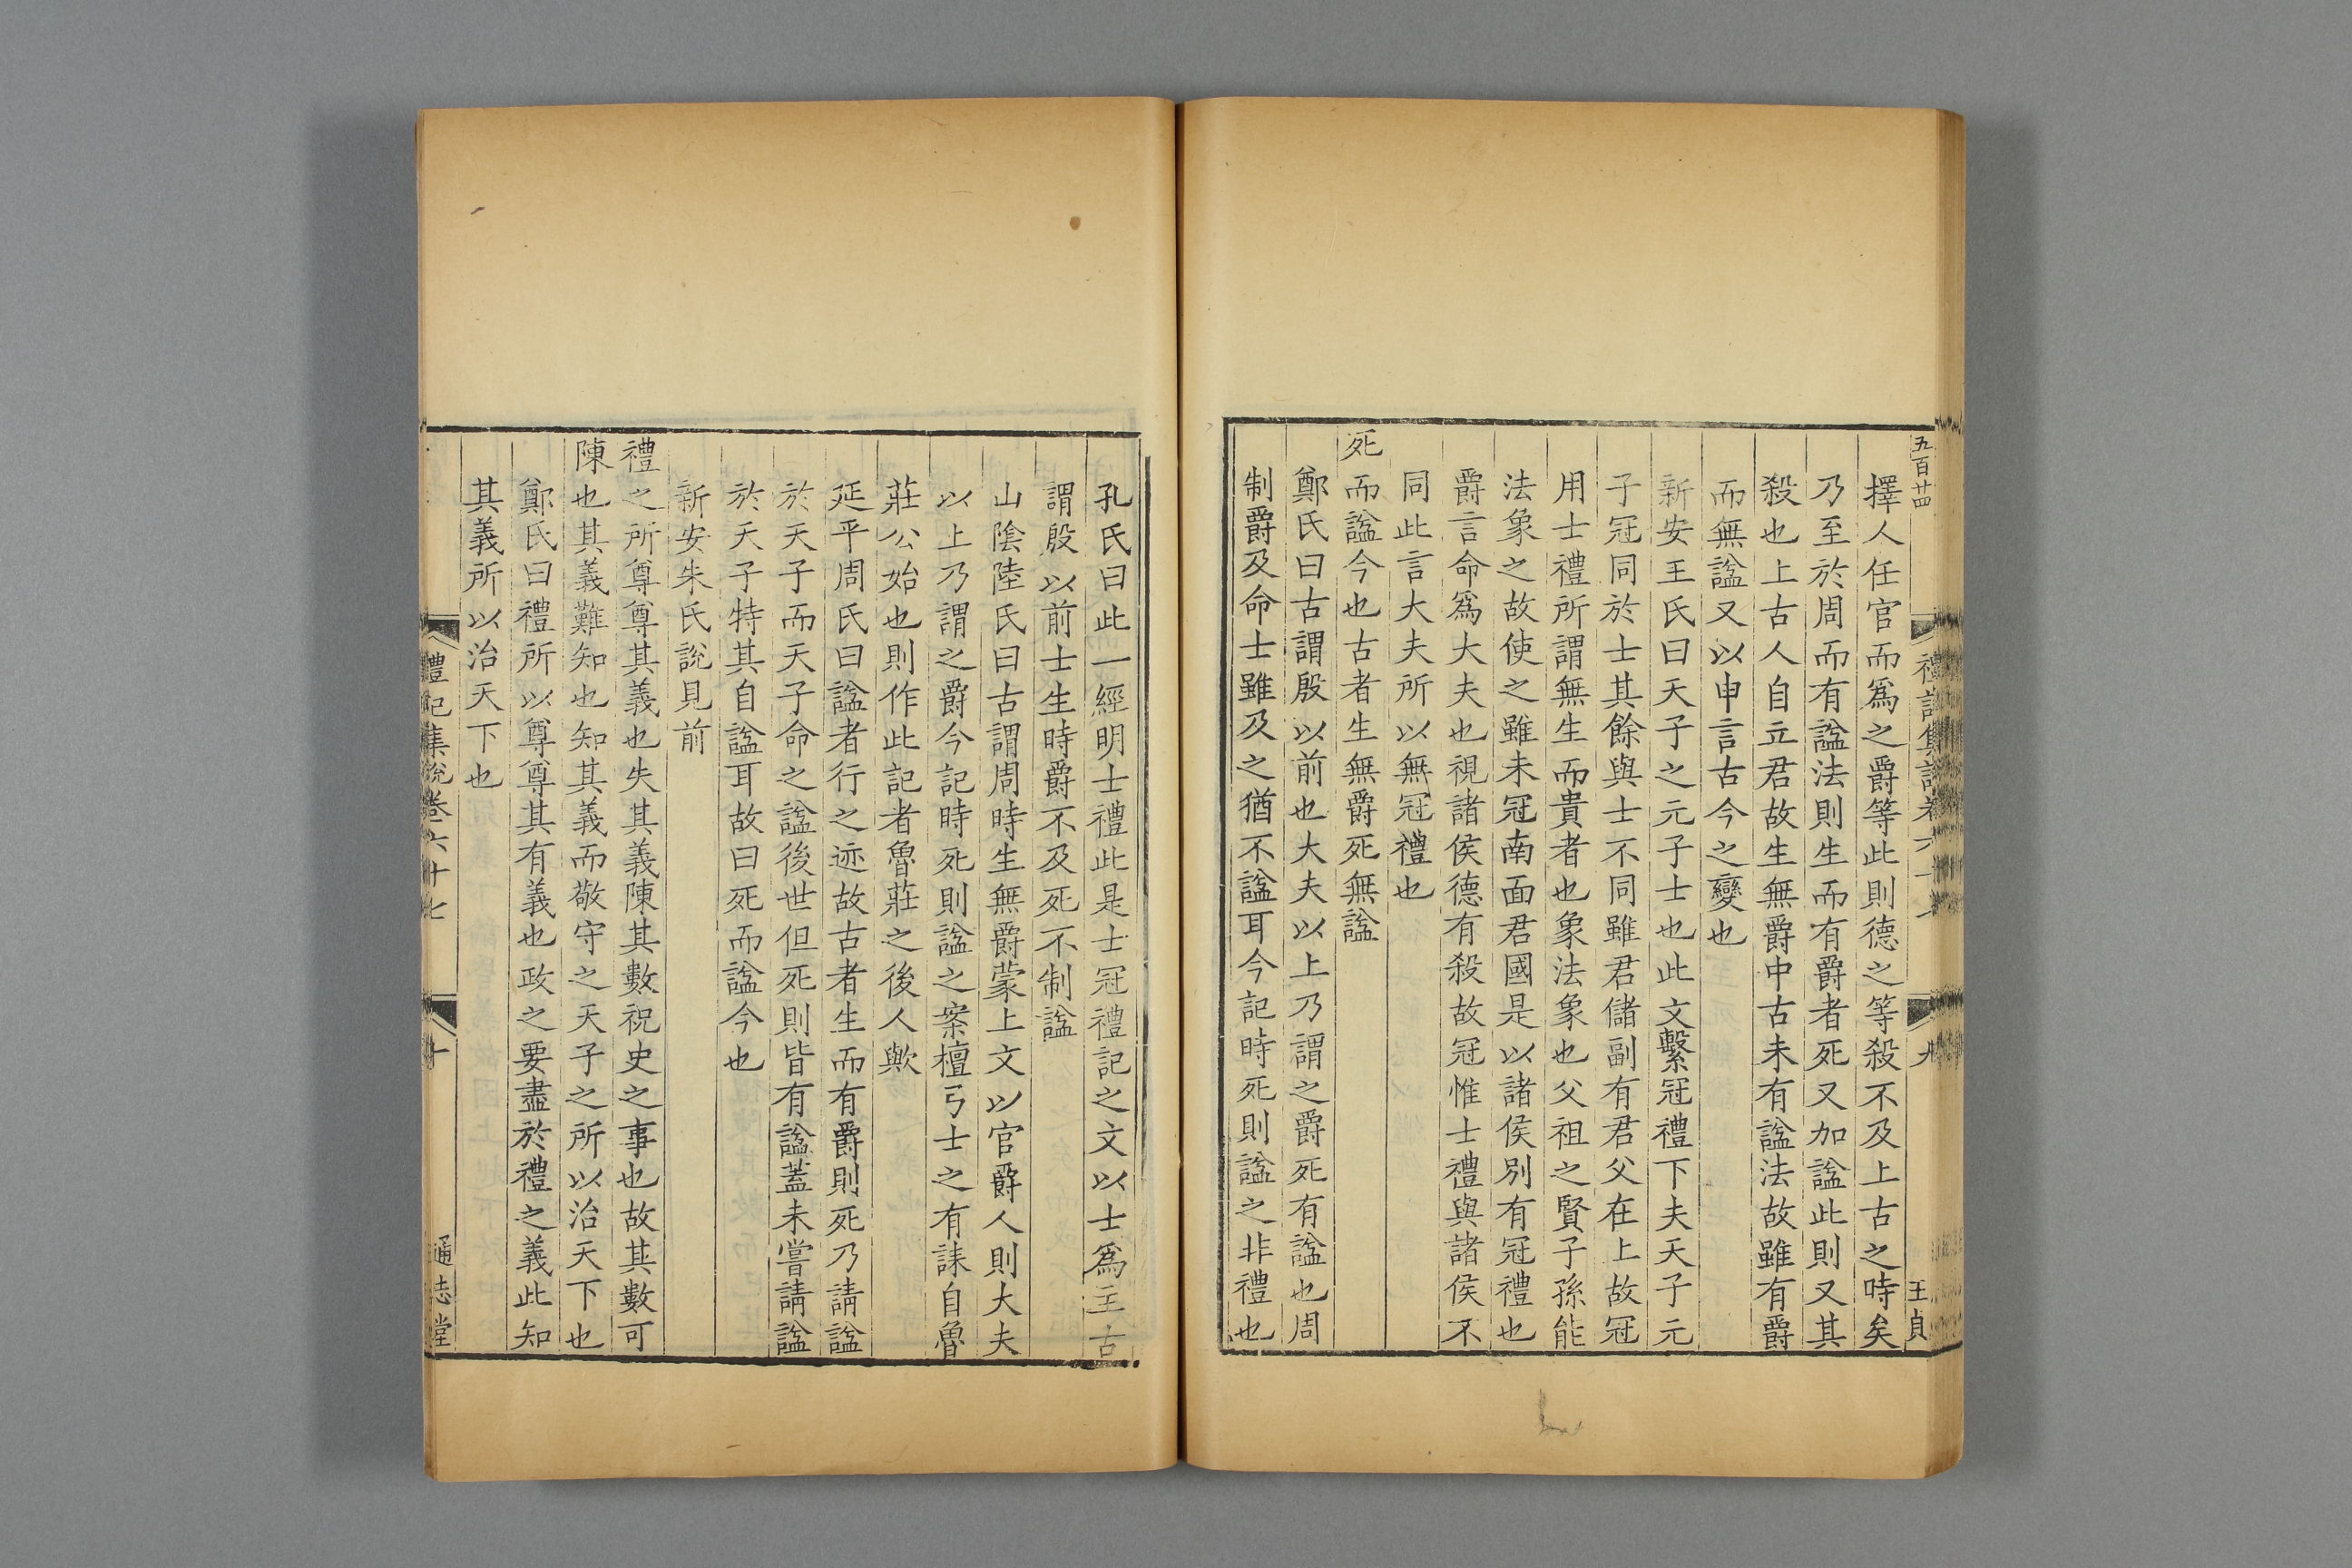 五百廿四
禮記集說卷六十七
九
王貞
擇人任官而爲之爵等此則德之等殺不及上古之時矣
乃至於周而有諡法則生而有爵者死又加諡此則又其
殺也上古人自立君故生無爵中古未有諡法故雖有爵
而無諡又以申言古今之變也
新安王氏曰天子之元子士也此文繫冠禮下夫天子元
子冠同於士其餘與士不同雖君儲副有君父在上故冠
用士禮所謂無生而貴者也象法象也父祖之賢子孫能
法象之故使之雖未冠南面君國是以諸侯別有冠禮也
爵言命爲大夫也視諸侯德有殺故冠惟士禮與諸侯不
同此言大夫所以無冠禮也
死而諡今也古者生無爵死無諡
鄭氏曰古謂殷以前也大夫以上乃謂之爵死有諡也周
制爵及命士雖及之猶不諡耳今記時死則諡之非禮也
孔氏曰此一經明士禮此是士冠禮記之文以士爲主古
謂殷以前士生時爵不及死不制諡
山陰陸氏曰古謂周時生無爵蒙上文以官爵人則大夫
以上乃謂之爵今記時死則諡之案檀弓士之有誄自魯
莊公始也則作此記者魯莊之後人歟
延平周氏曰諡者行之迹故古者生而有爵則死乃請諡
於天子而天子命之諡後世但死則皆有諡蓋未嘗請諡
於天子特其自諡耳故曰死而諡今也
新安朱氏說見前
禮之所尊尊其義也失其義陳其數祝史之事也故其數可
陳也其義難知也知其義而敬守之天子之所以治天下也
鄭氏曰禮所以尊尊其有義也政之要盡於禮之義此知
其義所以治天下也
禮記集說卷六十七
十
通志堂